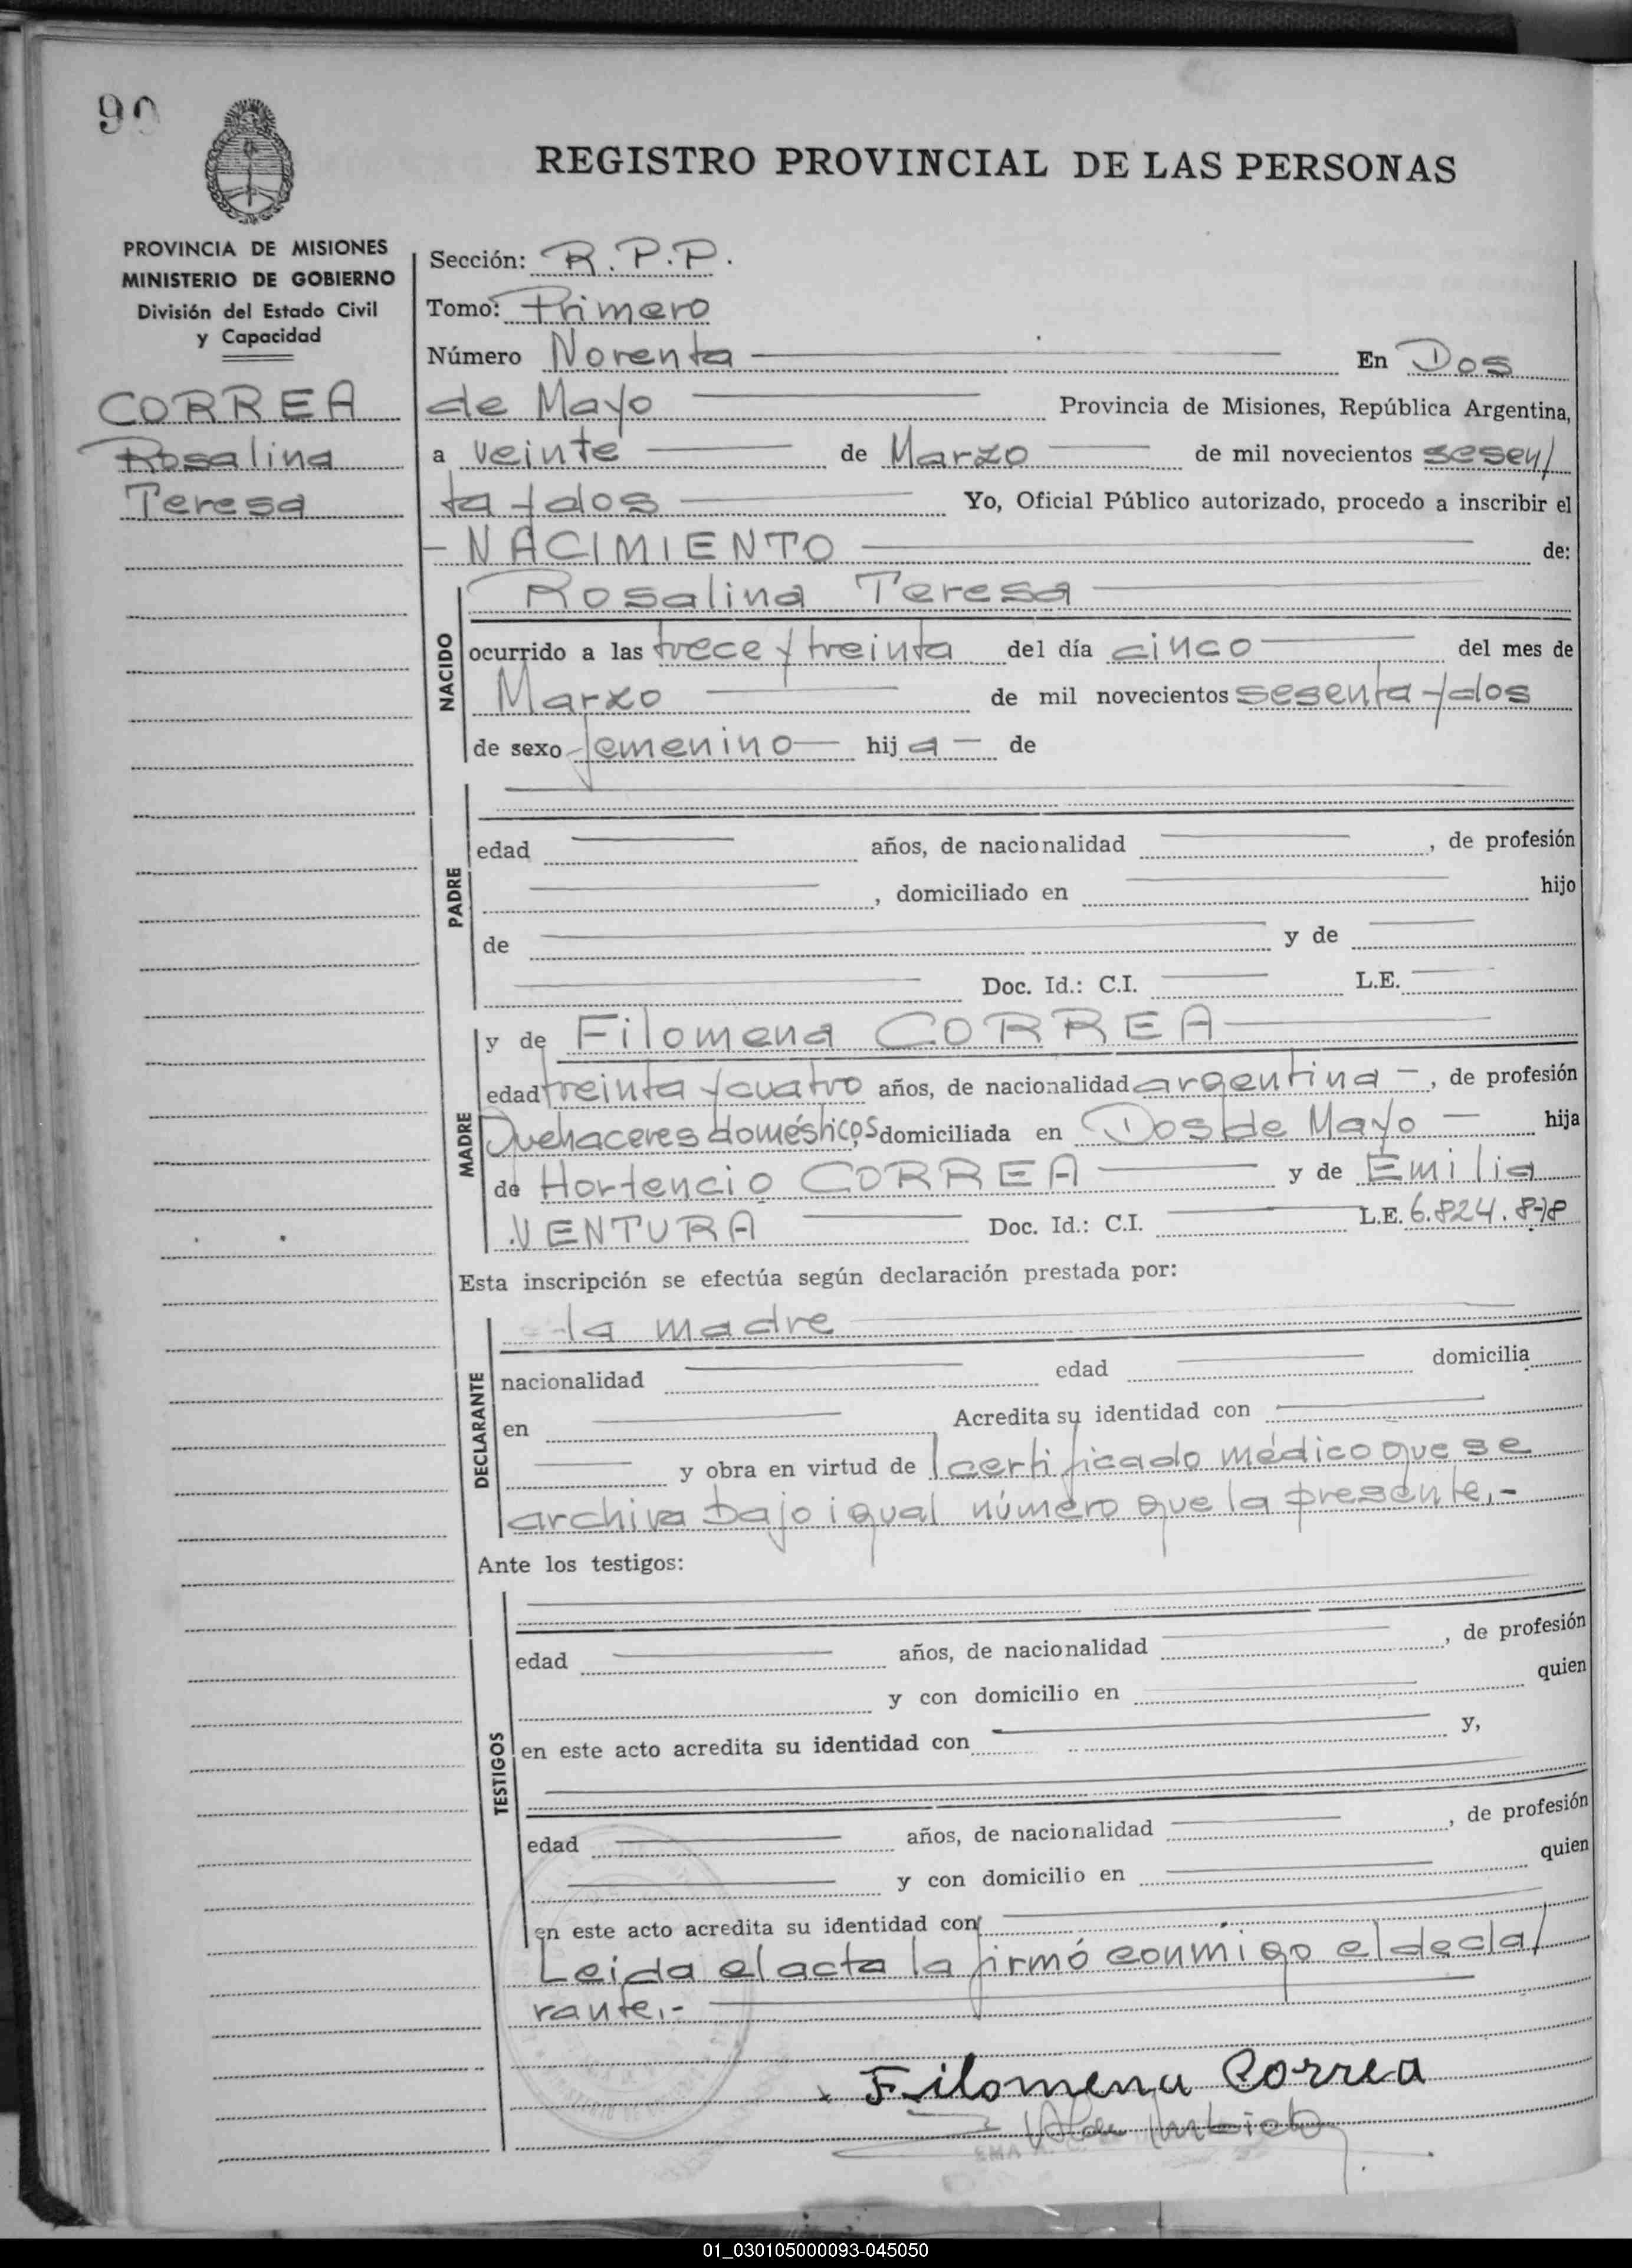 90
REGISTRO PROVINCIAL DE LAS PERSONAS
PROVINCIA DE MISIONES
MINISTERIO DE GOBIERNO
División del Estado Civil
y Capacidad
CORREA
Rosalina
Teresa
Sección: R.P.P.
Tomo: Primero
Número Noventa En Dos
de Mayo Provincia de Misiones, República Argentina,
a veinte de Marzo de mil novecientos sesen/
ta y dos Yo, Oficial Público autorizado, procedo a inscribir el
- NACIMIENTO de:
NACIDO
Rosalina Teresa
ocurrido a las trece y treinta del día cinco del mes de
Marzo de mil novecientos sesenta y dos
de sexo femenino hija de
PADRE
edad años, de nacionalidad , de profesión
, domiciliado en hijo
de y de
Doc. Id.: C.I. L.E.
MADRE
y de Filomena CORREA
edad treinta y cuatro años, de nacionalidad argentina -, de profesión
Quehaceres domésticos, domiciliada en Dos de Mayo hija
de Hortencio CORREA y de Emilia
VENTURA Doc. Id.: C.I. L.E. 6.824.878
Esta inscripción se efectúa según declaración prestada por:
DECLARANTE
la madre
nacionalidad edad domicilia
en Acredita su identidad con
y obra en virtud de certificado médico que se
archiva bajo igual número que la presente.-
Ante los testigos:
TESTIGOS
edad años, de nacionalidad , de profesión
y con domicilio en quien
en este acto acredita su identidad con y,
edad años, de nacionalidad , de profesión
y con domicilio en quien
en este acto acredita su identidad con
Leida el acta la firmó conmigo el decla/
rante.-
Filomena Correa
01_030105000093-045050